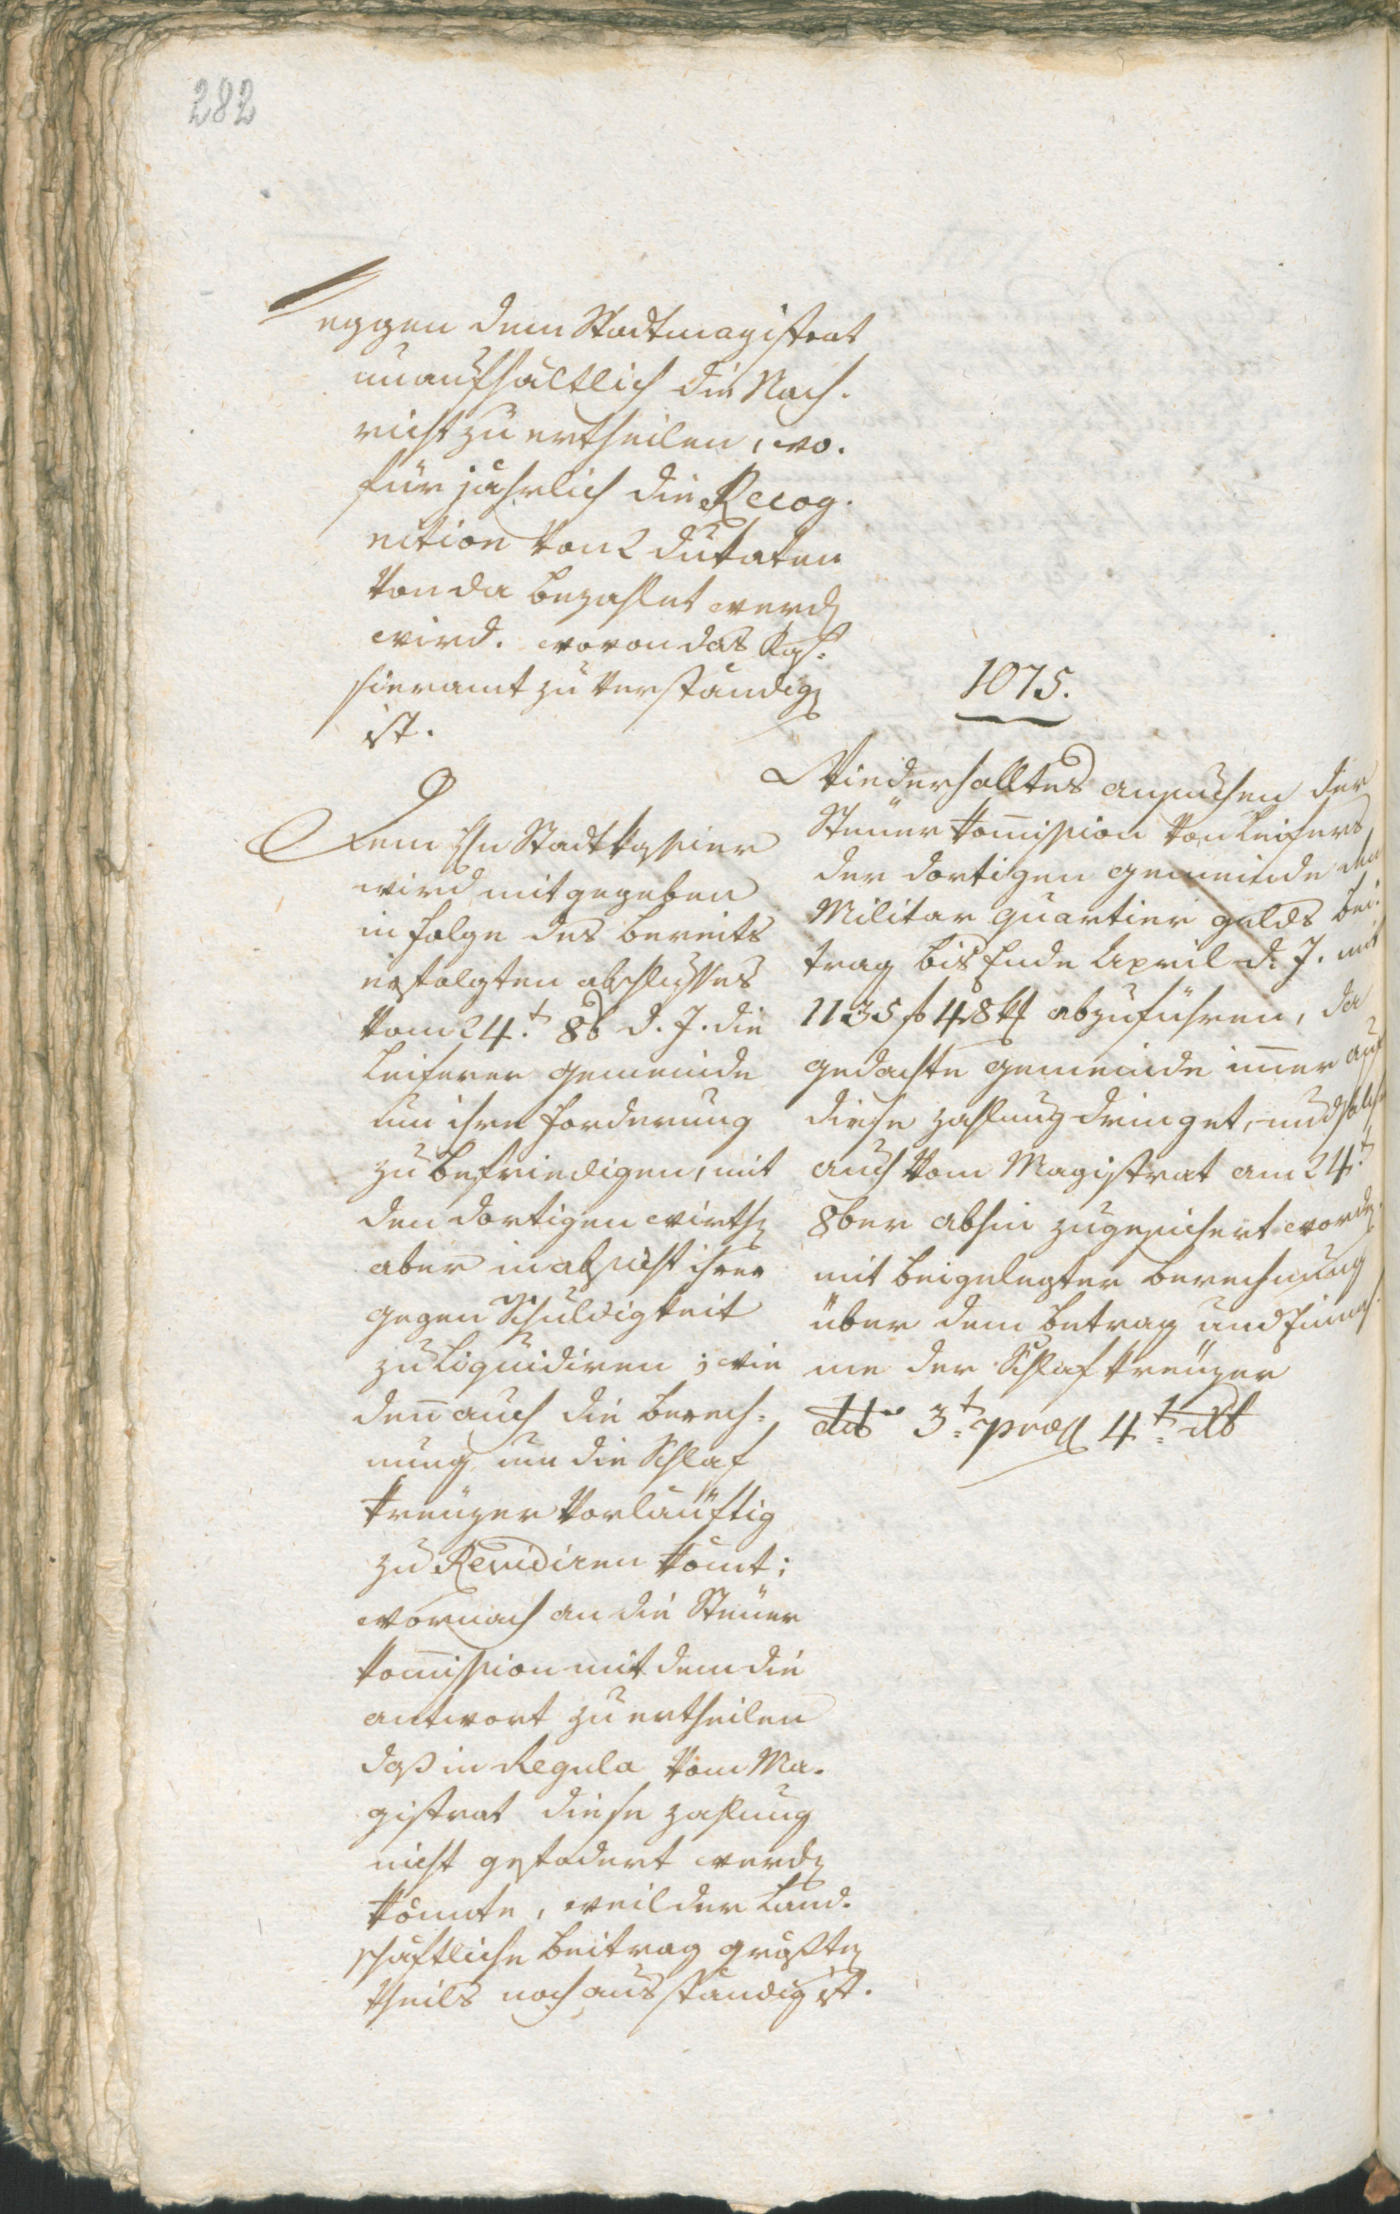 282
eggen dem Stadtmagistrat
unaufhältlich die Nach-
richt zu ertheilen, wo-
für jährlich die Recog-
nition von 2 Dukaten
von da bezahlet werd
wird. wovon das Kas-
sieramt zu verständig
ist.
Dem Hn Stadtkassier
wird mitgegeben
in folge des bereits
erfolgten abschlusses
vom 24.t 8b d. J. die
Leiferer gemeinde
um ihre forderung
zu befriedigen, mit
den dortigen wirth
aber in absicht ihrer
gegen Schuldigkeit
zu liquidiren; wie
den̄ auch die berech-
nung um die Schlaf
kreuzer vorläuftig
zu Revidiren kömt;
wornach an die Steuer
kom̄ission mit dem die
antwort zu ertheilen
daß in Regula vom Ma-
gistrat diese zahlung
nicht gefodert werd
könnte, weil der Land-
schaftliche beitrag größte
theils noch ausständig ist.
1075.
Wiederholltes ansuchen der
Steüer kom̄ission von Leifers
der dortigen gemeinde den
Militar quartier gelds bei-
trag bis Ende April d. J. mit
1135 f 48 kr abzuführen, da
gedachte gemeinde im̄er auf
diese zahlung dringet, und solche
auch vom Magistrat am 24.t
8ber abhin zugesichert word
mit beigelegter berechnung
über dem betrag und Ein̄ah-
me der Schlafkreuzer
ddto 3.t præs 4.t Xb